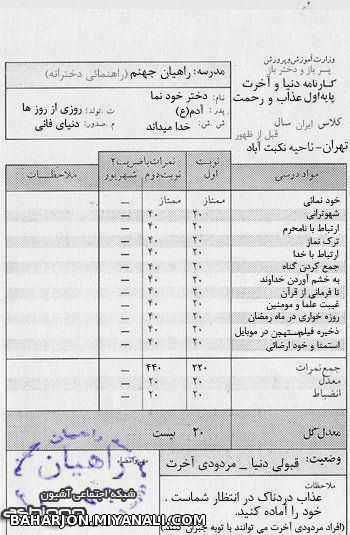 وزارت آموزش و پرورش
پسر باز و دختر باز
کارنامه دنیا و آخرت
پایه اول عذاب و رحمت
کلاس ایران سال
قبل از ظهور
تهران - ناحیه نکبت آباد
مدرسه: راهیان جهنم (راهنمائی دخترانه)
نام: دختر خود نما
پدر: آدم(ع) ت.تولد: روزی از روز ها
ش.ش: خدا میداند م.صدور: دنیای فانی
مواد درسی نوبت اول نمرات با ضریب ۲ نوبت دوم شهریور ملاحظات
خود نمائی ممتاز ممتاز —
شهوترانی ۲۰ ۴۰ —
ارتباط با نامحرم ۲۰ ۴۰ —
ترک نماز ۲۰ ۴۰ —
ارتباط با خدا ۲۰ ۴۰ —
جمع کردن گناه ۲۰ ۴۰ —
به خشم آوردن خداوند ۲۰ ۴۰ —
نا فرمانی از قرآن ۲۰ ۴۰ —
غیبت علما و مومنین ۲۰ ۴۰ —
روزه خواری در ماه رمضان ۲۰ ۴۰ —
ذخیره فیلم مستهجن در موبایل ۲۰ ۴۰ —
استمنا و خود ارضائی ۲۰ ۴۰ —
جمع نمرات ۲۲۰ ۴۴۰ —
معدل ۲۰ ۲۰ —
انضباط ۲۰ ۲۰ —
معدل کل ۲۰ بیست
وضعیت: قبولی دنیا _ مردودی آخرت
مهر و امضاء
ملاحظات
عذاب دردناک در انتظار شماست .
خود را آماده کنید.
(افراد مردودی آخرت می توانند با توبه جبران کنند)
راهیان
راهیان
شبکه اجتماعی آشیون
BAHARJON.MIYANALI.COM